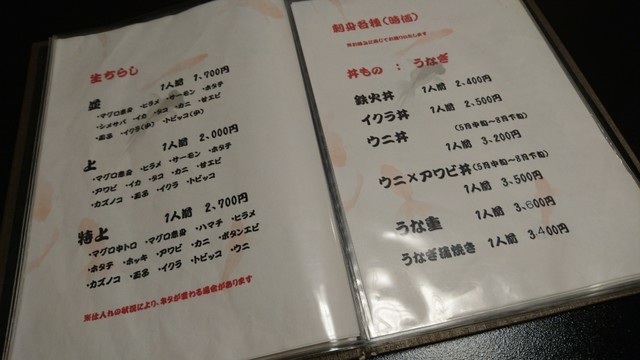 生ちらし
並 1人間 1,700円
・マグロ赤身 ・ヒラメ ・サーモン ・ホタテ
・シメサバ ・イカ ・タコ ・カニ ・甘エビ
・玉子 ・イクラ(小) ・トビッコ(小)
上 1人間 2,000円
・マグロ赤身 ・ヒラメ ・サーモン ・ホタテ
・アワビ ・イカ ・タコ ・カニ ・甘エビ
・カズノコ ・玉子 ・イクラ ・トビッコ
特上 1人間 2,700円
・マグロ中トロ ・マグロ赤身 ・ハマチ ・ヒラメ
・ホタテ ・ホッキ ・アワビ ・カニ ・ボタンエビ
・カズノコ ・玉子 ・イクラ ・トビッコ ・ウニ
※仕入れの状況により、ネタが変わる場合があります
刺身各種(時価)
丼もの : うなぎ
鉄火丼 1人間 2,400円
イクラ丼 1人間 2,500円
ウニ丼 (5月中旬〜8月下旬)
1人間 3,200円
ウニ×アワビ丼 (5月中旬〜8月下旬)
1人間 3,500円
うな重 1人間 3,800円
うなぎ蒲焼き 1人間 3,400円